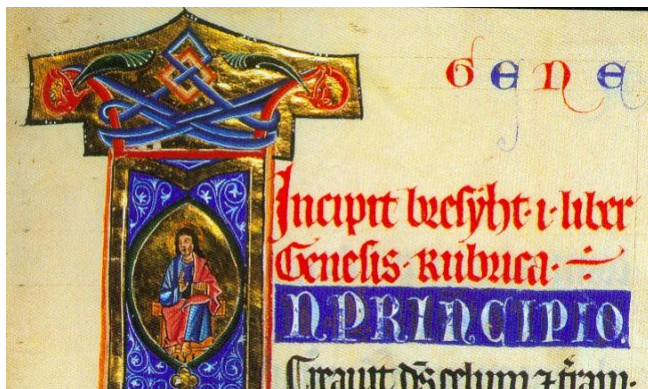 GENE
Incipit bresyht·i·liber
Genesis·Rubrica·
N PRINCIPIO.
Creauit ds celum ⁊